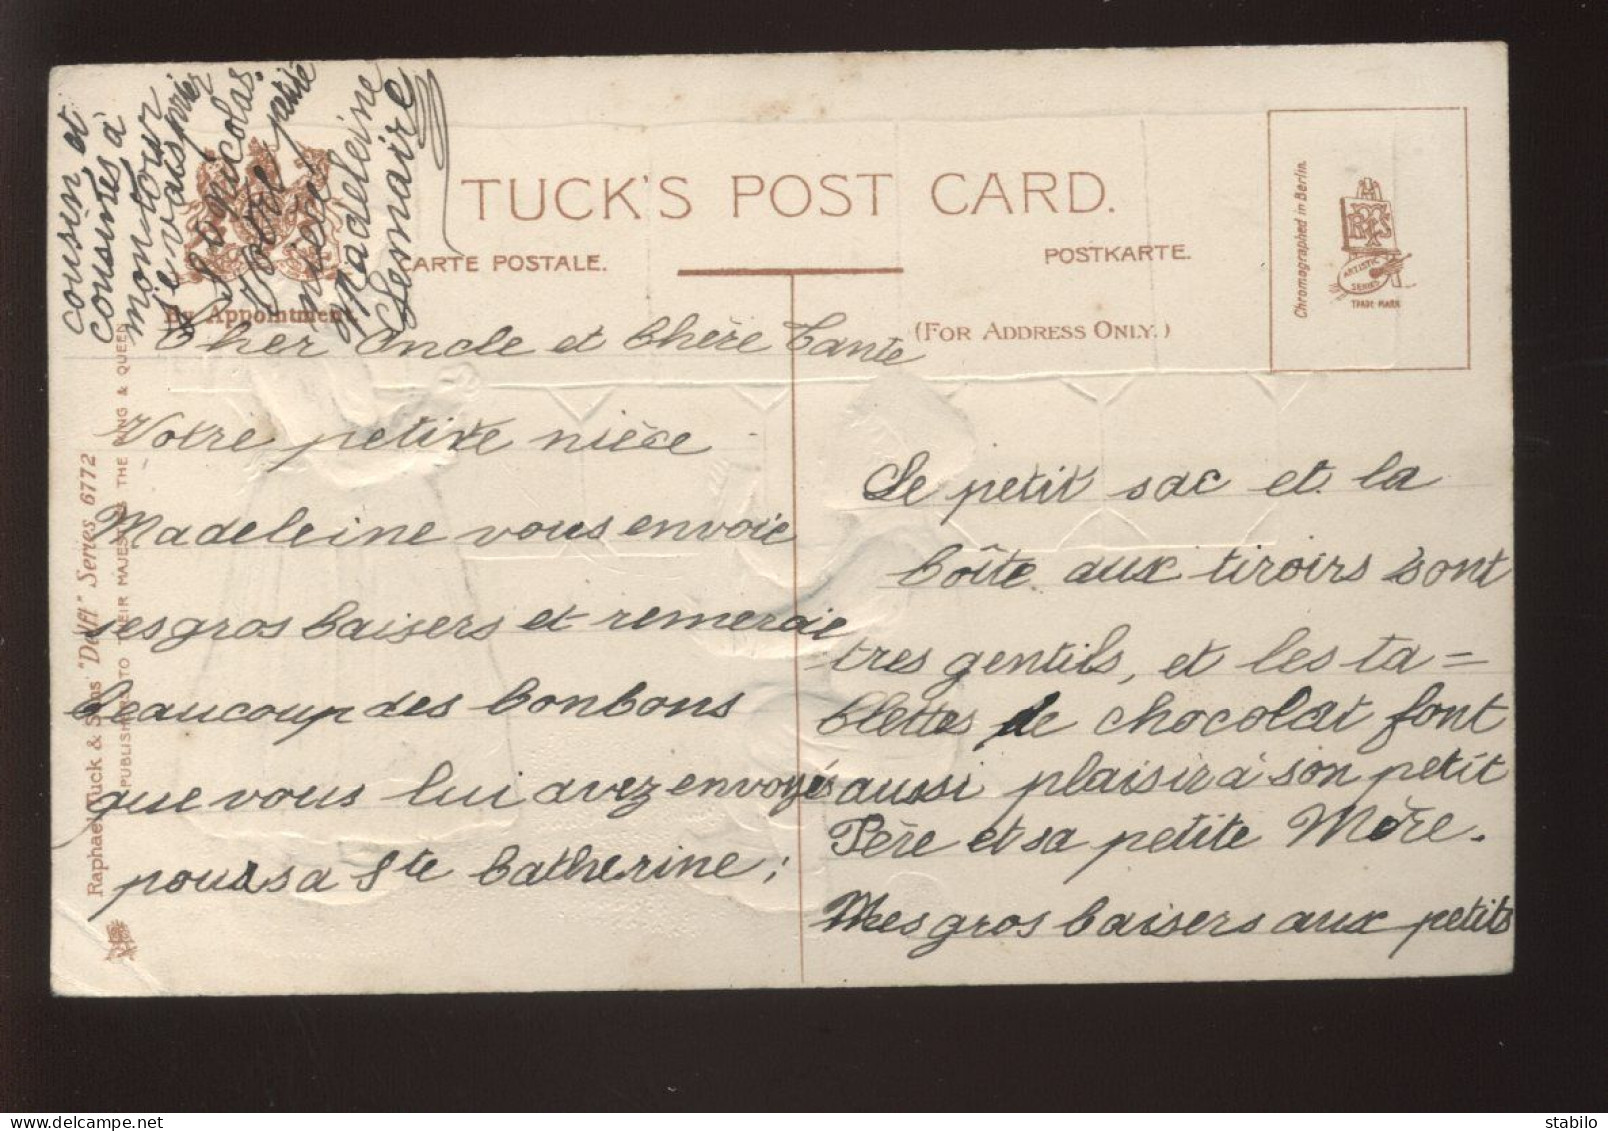 TUCK'S POST CARD.
CARTE POSTALE.
POSTKARTE.
(FOR ADDRESS ONLY.)
By Appointment.
Chromographed in Berlin.
ARTISTIC
SERIES
TRADE MARK
Raphael Tuck & Sons' "Delft" Series 6772
PUBLISHERS TO THEIR MAJESTIES THE KING & QUEEN
Cher Oncle et Chère Tante
Votre petite nièce
Madeleine vous envoie
ses gros baisers et remercie
beaucoup des bonbons
que vous lui avez envoyés
pour sa Ste Catherine;
Le petit sac et la
boîte aux tiroirs sont
tres gentils, et les ta=
blettes de chocolat font
aussi plaisir à son petit
Père et sa petite Mère.
Mes gros baisers aux petits
cousin et
cousines à
mon tour
je vais prier
S nicolas.
Votre petite
nièce
Madeleine
Lemaire
stabilo